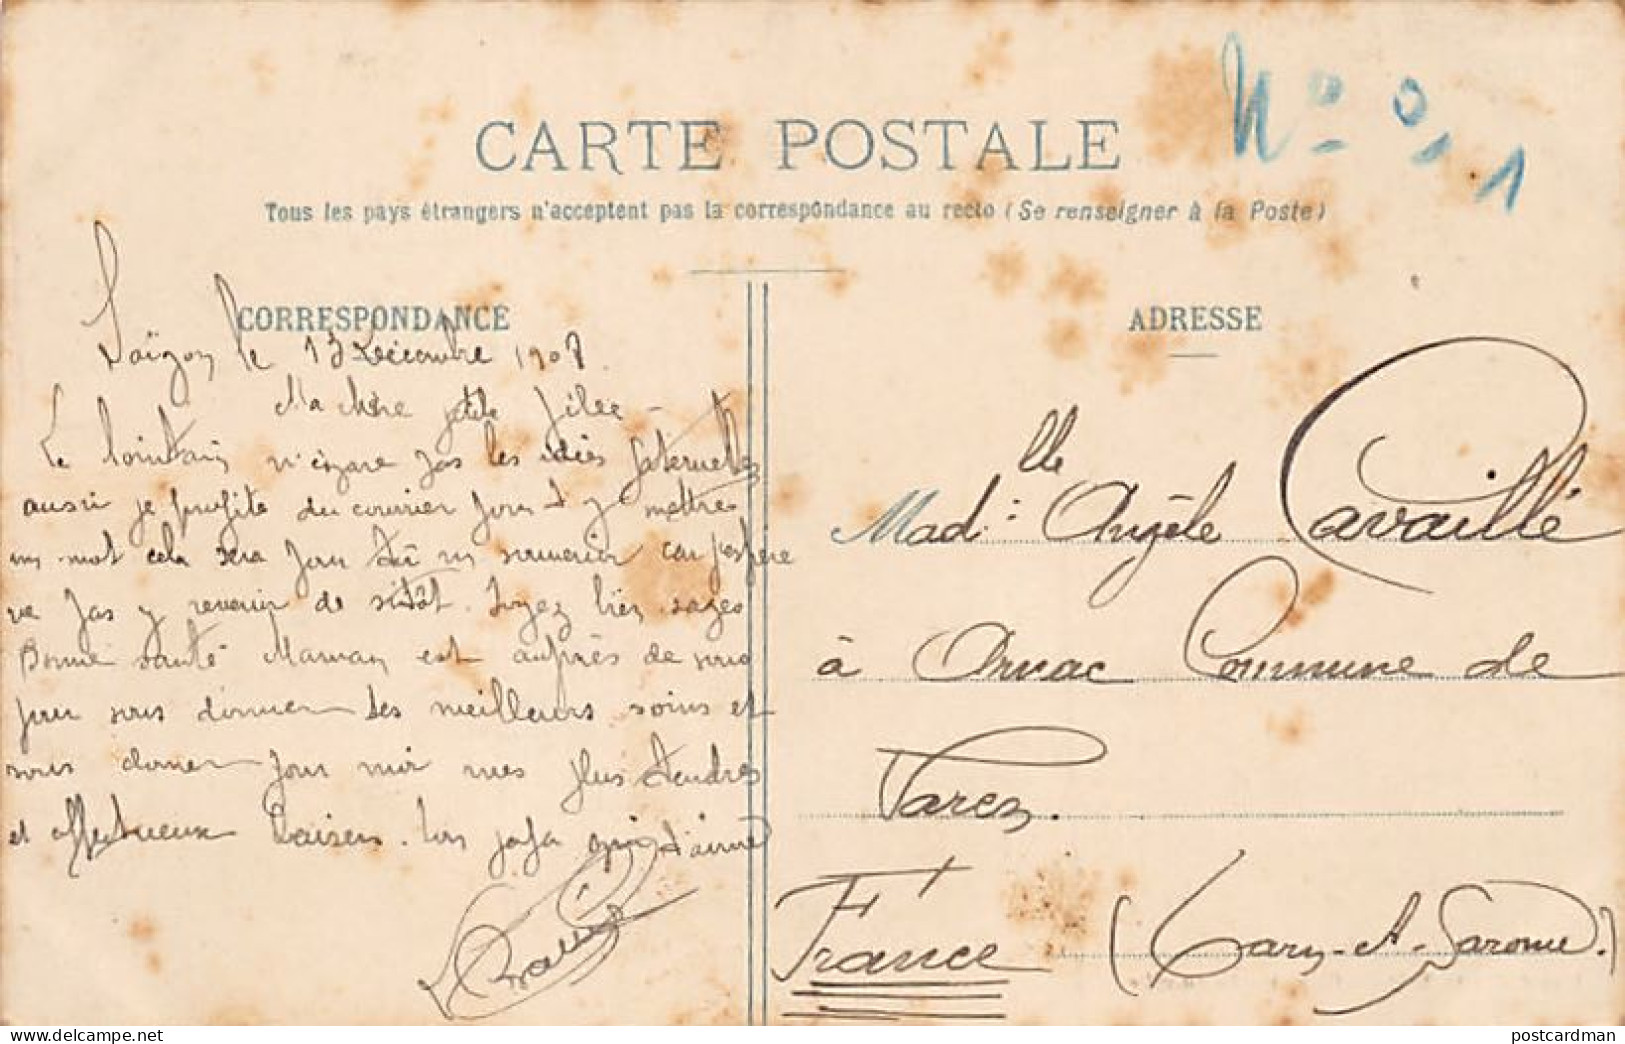 N° 0. 1
CARTE POSTALE
Tous les pays étrangers n'acceptent pas la correspondance au recto (Se renseigner à la Poste)
CORRESPONDANCE
Saïgon le 13 Décembre 1907.
Ma chère petite fillee
Le lointain n'égare pas les idées paternelles
aussi je profite du courrier pour y mettre
un mot cela sera pour toi un souvenir car j'espère
ne pas y revenir de sitôt. Soyez bien sages
Bonne santé Maman est auprès de vous
pour vous donner les meilleurs soins et
vous donner pour moi mes plus tendres
et affectueux baisers. ton papa qui t'aime
Cavaillé
ADRESSE
Mad.lle Angèle Cavaillé
à Orvac Commune de
Varen.
France (Tarn-et-Garonne.)
postcardman's collection since 1984
postcardman